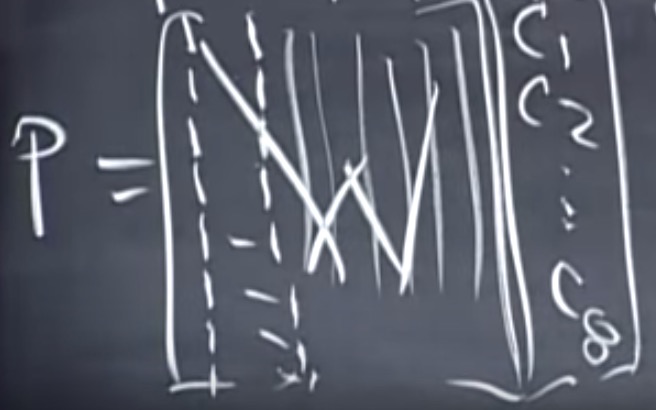 P = [ W ] [ C1
C2
⋮
C8 ]